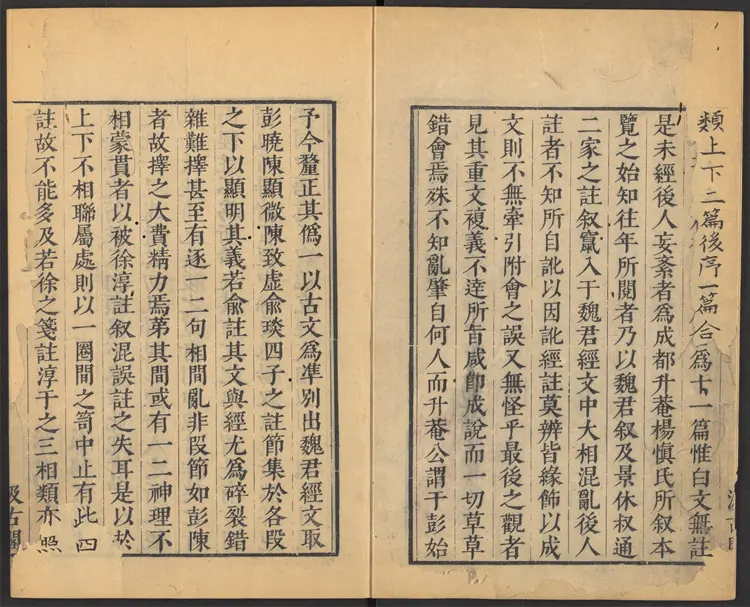 類上下二篇後序一篇合爲十一篇惟白文無註
是未經後人妄紊者爲成都升菴楊慎氏所叙本
覽之始知往年所閱者乃以魏君叙及景休叔通
二家之註叙竄入于魏君經文中大相混亂後人
註者不知所自訛以因訛經註莫辨皆緣飾以成
文則不無牽引附會之誤又無怪乎最後之觀者
見其重文複義不逹所旨咸卽成說而一切草草
錯會焉殊不知亂肇自何人而升菴公謂于彭始
予今釐正其僞一以古文爲凖別出魏君經文取
彭曉陳顯微陳致虛俞琰四子之註節集於各段
之下以顯明其義若俞註其文與經尤爲碎裂錯
雜難擇甚至有逐一二句相間亂非段節如彭陳
者故擇之大費精力焉第其間或有一二神理不
相蒙貫者以被徐淳註叙混誤註之失耳是以於
上下不相聯屬處則以一圈間之笥中止有此四
註故不能多及若徐之箋註淳于之三相類亦照
汲古閣